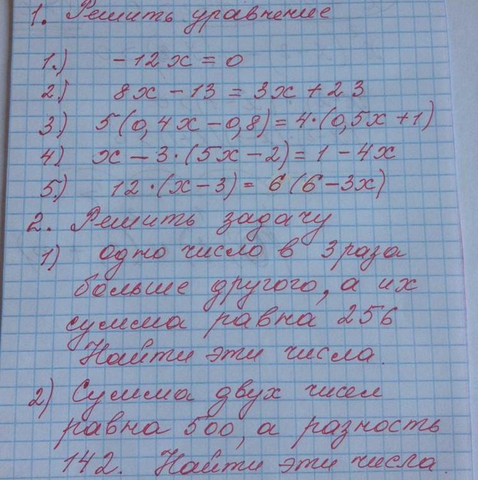 1. Решить уравнение
1.) -12x = 0
2) 8x - 13 = 3x + 23
3) 5(0,4x - 0,8) = 4·(0,5x + 1)
4) x - 3·(5x - 2) = 1 - 4x
5.) 12·(x - 3) = 6(6 - 3x)
2. Решить задачу
1) одно число в 3 раза
больше другого, а их
сумма равна 256
Найти эти числа.
2) Сумма двух чисел
равна 500, а разность
142. Найти эти числа.